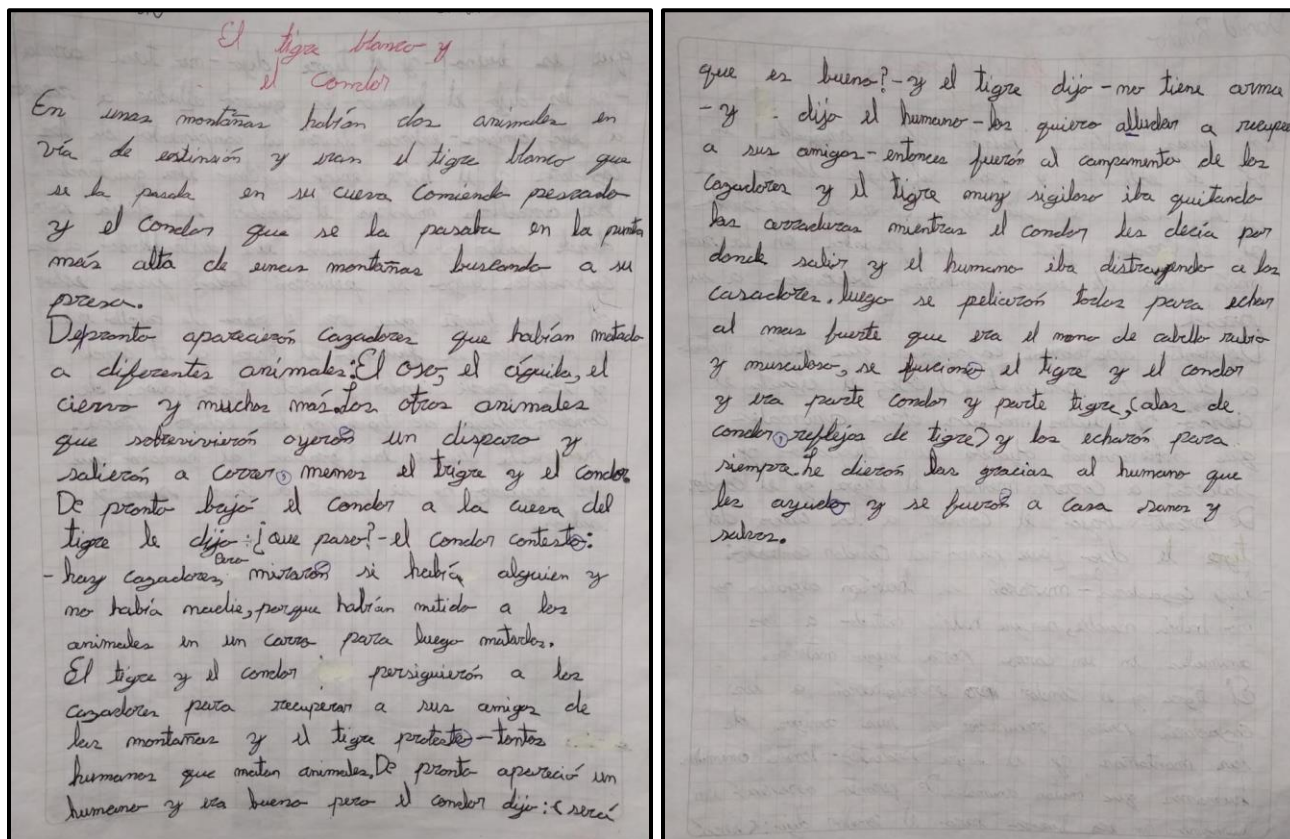 El tigre blanco y
el Condor
En unas montañas habían dos animales en
vía de estinsión y eran el tigre blanco que
se la pasada en su cueva comiendo pescado
y el Condor que se la pasaba en la punta
más alta de unas montañas buscando a su
presa.
Depronto aparecierón cazadores que habían matado
a diferentes animales: El oso, el águila, el
ciervo y muchos más. Los otros animales
que sobrevivierón oyerón un disparo y
salierón a correr, menos el trigre y el condor.
De pronto bajó el condor a la cueva del
tigre le dijo: ¿que paso? - el condor contesto:
- hay cazadores, Pero mirarón si había alguien y
no había nadie, porque habían metido a los
animales en un carro para luego matarlos.
El tigre y el condor persiguierón a los
cazadores para recuperar a sus amigos de
las montañas y el tigre protesto - tontos
humanos que matan animales. De pronto apareció un
humano y era bueno pero el condor dijo: ¿será
que es bueno? - y el tigre dijo - no tiene arma
- y dijo el humano - los quiero alludar a recupe
a sus amigos - entonces fuerón al campamento de los
cazadores y el tigre muy sigiloso iba quitando
las cerraduras mientras el condor les decia por
donde salir y el humano iba distrayendo a los
casadores. luego se peliarón todos para echar
al mas fuerte que era el mono de cabello rubio
y musculoso, se fuciono el tigre y el condor
y era parte condor y parte tigre, (alas de
condor, reflejos de tigre) y los echarón para
siempre. le dierón las gracias al humano que
les ayudo y se fuerón a casa sanos y
salvos.